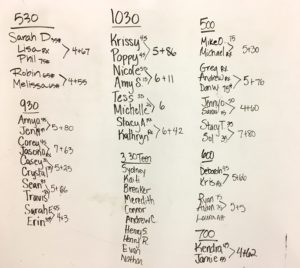 530
Sarah D 55#
Lisa RX
Phil 75#
4+67
Robin 65#
Melissa 65#
4+55
930
Annya
Jen
5+80
Corey
Jason
7+63
Casey
Crystal
5+25
Sean
Travis
5+86
Sarah
Erin
4+3
1030
Krissy 45
Poppy 45
5+86
Nicole
Amy S
6+11
Tess 55
Michelle
6
Stacy A
Kathryn
6+42
3:30 Teen
Sydney
Kati
Brecker
Meredith
Connor
Andrew C.
Henry S.
Henry R
Evan
Nathan
500
Mike O 75
Michael
5+30
Greg RX
Andrew RX
Dan W 75#
5+76
Jenny O
Sarah
4+60
Stacy T
Sol
7+80
600
Deborah 35
Kris RX
5+60
Ryan 75
5+5
Laura
700
Kendra
Jamie
4+62